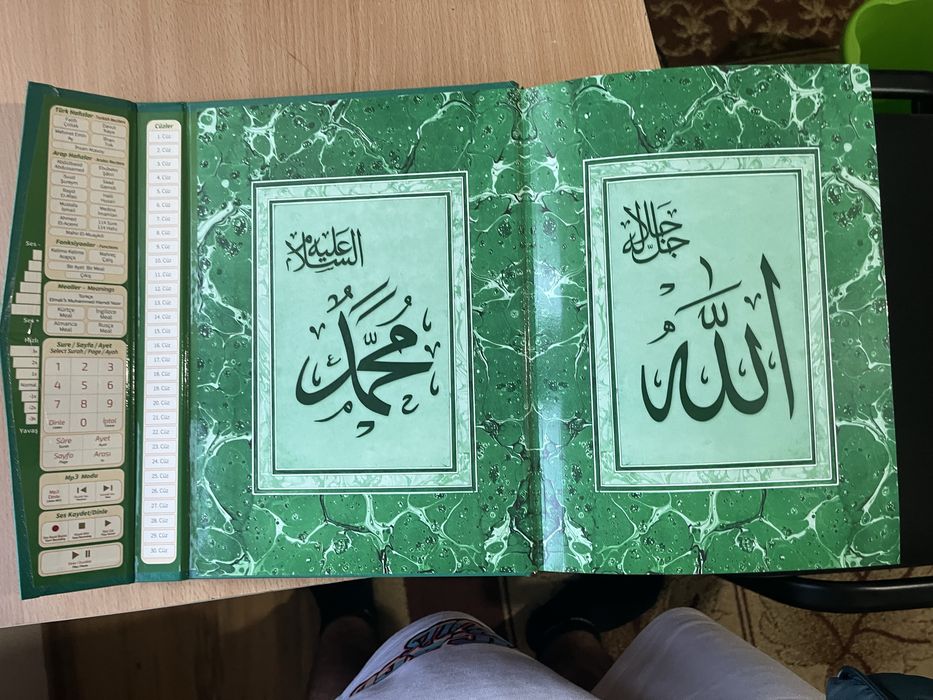 Türk Hafızlar - Turkish Reciters
Fatih
Çollak
Davut
Kaya
Mehmet Emin
Ay
İlhan
Tok
İshak Danış
Arap Hafızlar - Arabic Reciters
Abdulbasit
Abdussamed
Ebubekir
Şatıri
Suud
Şureym
Saad
Gamidi
Mustafa
İsmail
Medine
İmamları
Ahmed
El-Acemi
114 Sure
114 Hafız
Mahir El-Muaykili
Fonksiyonlar - Functions
Kelime Kelime
Arapça
Mahreç
Çalış
Bir Ayet Bir Meal
Çalış
Mealler - Meanings
Türkçe
Elmalı'lı Muhammed Hamdi Yazır
Kürtçe
Meal
İngilizce
Meal
Almanca
Meal
Rusça
Meal
Sure / Sayfa / Ayet
Select Surah / Page / Ayah
1 2 3
4 5 6
7 8 9
Dinle 0 İptal
Sûre Ayet
Sayfa Arası
Mp3 Modu
Mp3
Dinle
Ses Kaydet/Dinle
Ses -
Ses +
Hızlı
3x
2x
1x
Normal
-1x
-2x
-3x
Yavaş
Cüzler
1. Cüz
2. Cüz
3. Cüz
4. Cüz
5. Cüz
6. Cüz
7. Cüz
8. Cüz
9. Cüz
10. Cüz
11. Cüz
12. Cüz
13. Cüz
14. Cüz
15. Cüz
16. Cüz
17. Cüz
18. Cüz
19. Cüz
20. Cüz
21. Cüz
22. Cüz
23. Cüz
24. Cüz
25. Cüz
26. Cüz
27. Cüz
28. Cüz
29. Cüz
30. Cüz
عليه
السلام
محمد
جل جلاله
الله